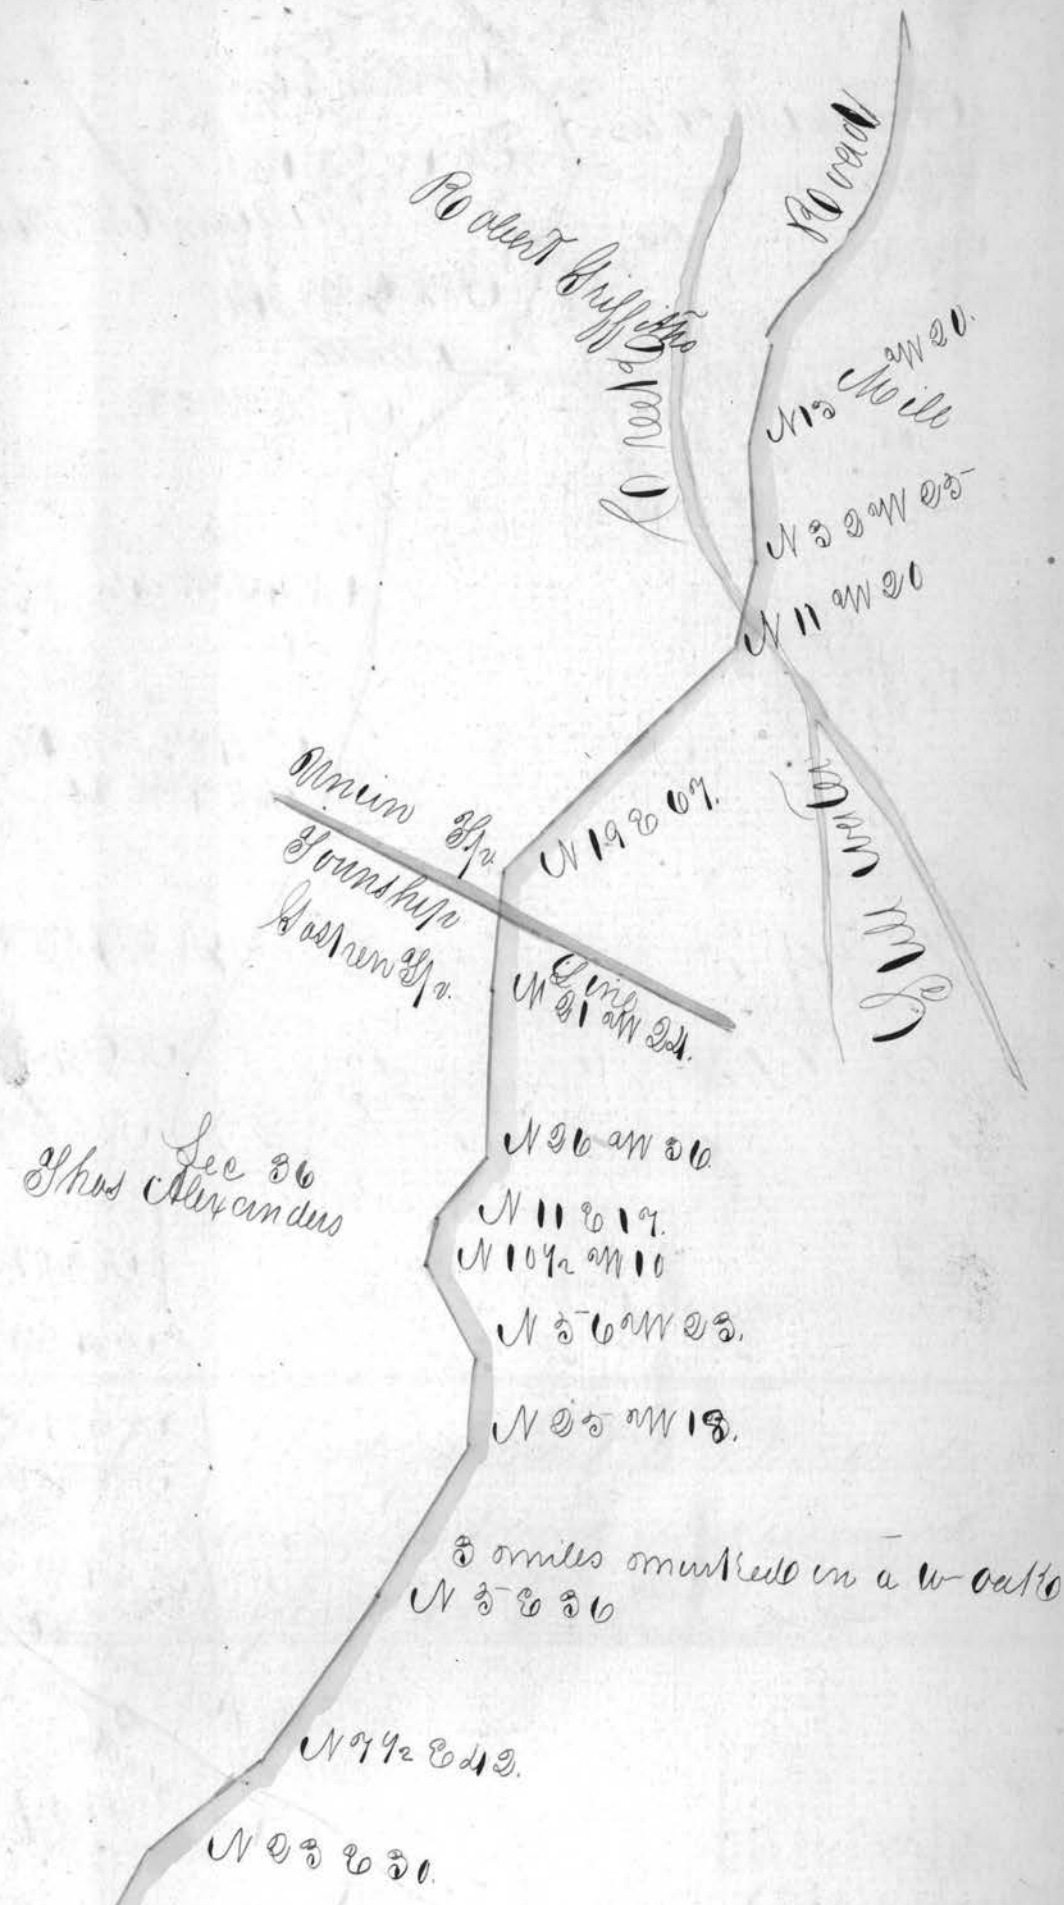 Road
Robert Griffiths
Creek
N 13 W 20.
Mile
N 32 W 25
N 11 W 20
Still water
N 19 E 67.
Union Tp.
Township
Line
Goshen Tp.
N 21 W 24.
N 26 W 36.
Sec 36
Thos Alexanders
N 11 E 17.
N 10 1/2 W 10
N 56 W 23.
N 25 W 18.
3 miles marked on a w oak
N 5 E 36
N 7 1/2 E 42.
N 23 E 30.